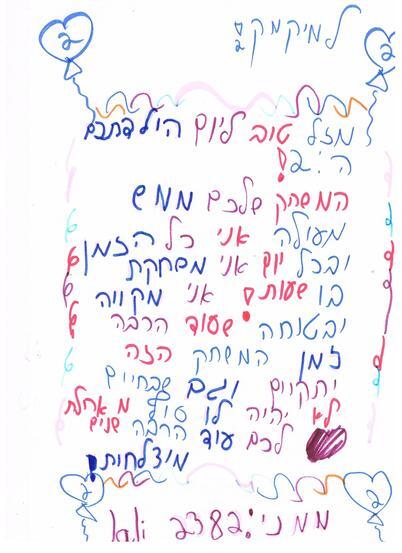 2
2
למיקמק!
מזל טוב ליום הולדתכם
ה־2!
המשחק שלכם ממש
מעולה אני כל הזמן
ובכל יום אני משחקת
בו שעות! אני מקווה
ובטוחה שעוד הרבה
זמן המשחק הזה
יתקיים וגם שבחיים
לא יהיה לו סוף מאחלת
לכם עוד הרבה שנים
מוצלחות!
2
2
ממני: 2382 lali